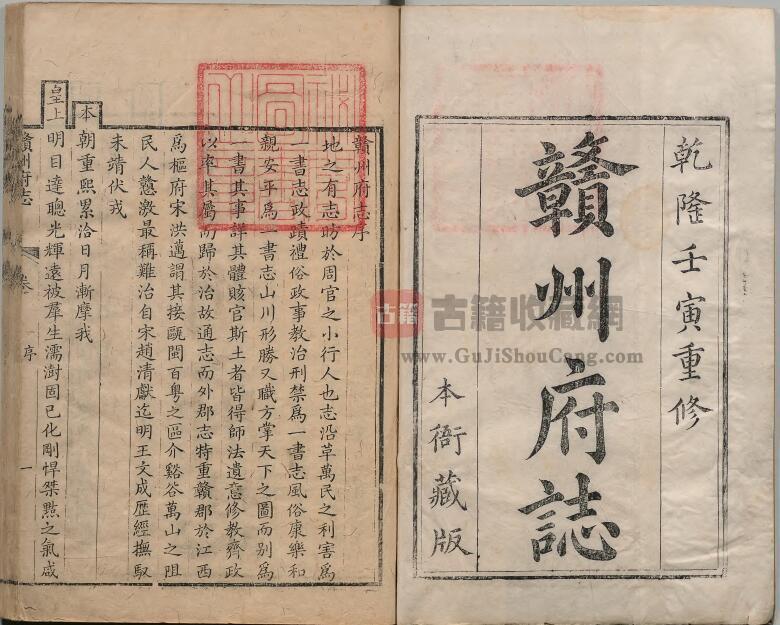 乾隆壬寅重修
贛州府誌
本衙藏版
贛州府志序
地之有志昉於周官之小行人也志沿革萬民之利害為
一書志政蹟禮俗政事教治刑禁為一書志風俗康樂和
親安平為一書志山川形勝又職方掌天下之圖而別為
一書其事詳其體賅官斯土者皆得師法遺意修教齊政
以率其屬而歸於治故通志而外郡志特重贛郡於江西
為樞府宋洪邁謂其接甌閩百粵之區介谿谷萬山之阻
民人憃激最稱難治自宋趙清獻迄明王文成歷經撫馭
未靖伏戎
本
朝重熙累洽日月漸摩我
皇上
明目達聰光輝遠被羣生濡澍固已化剛悍桀黠之氣咸
贛州府志
序
一
古籍
古籍收藏網
www.GuJiShouCang.com